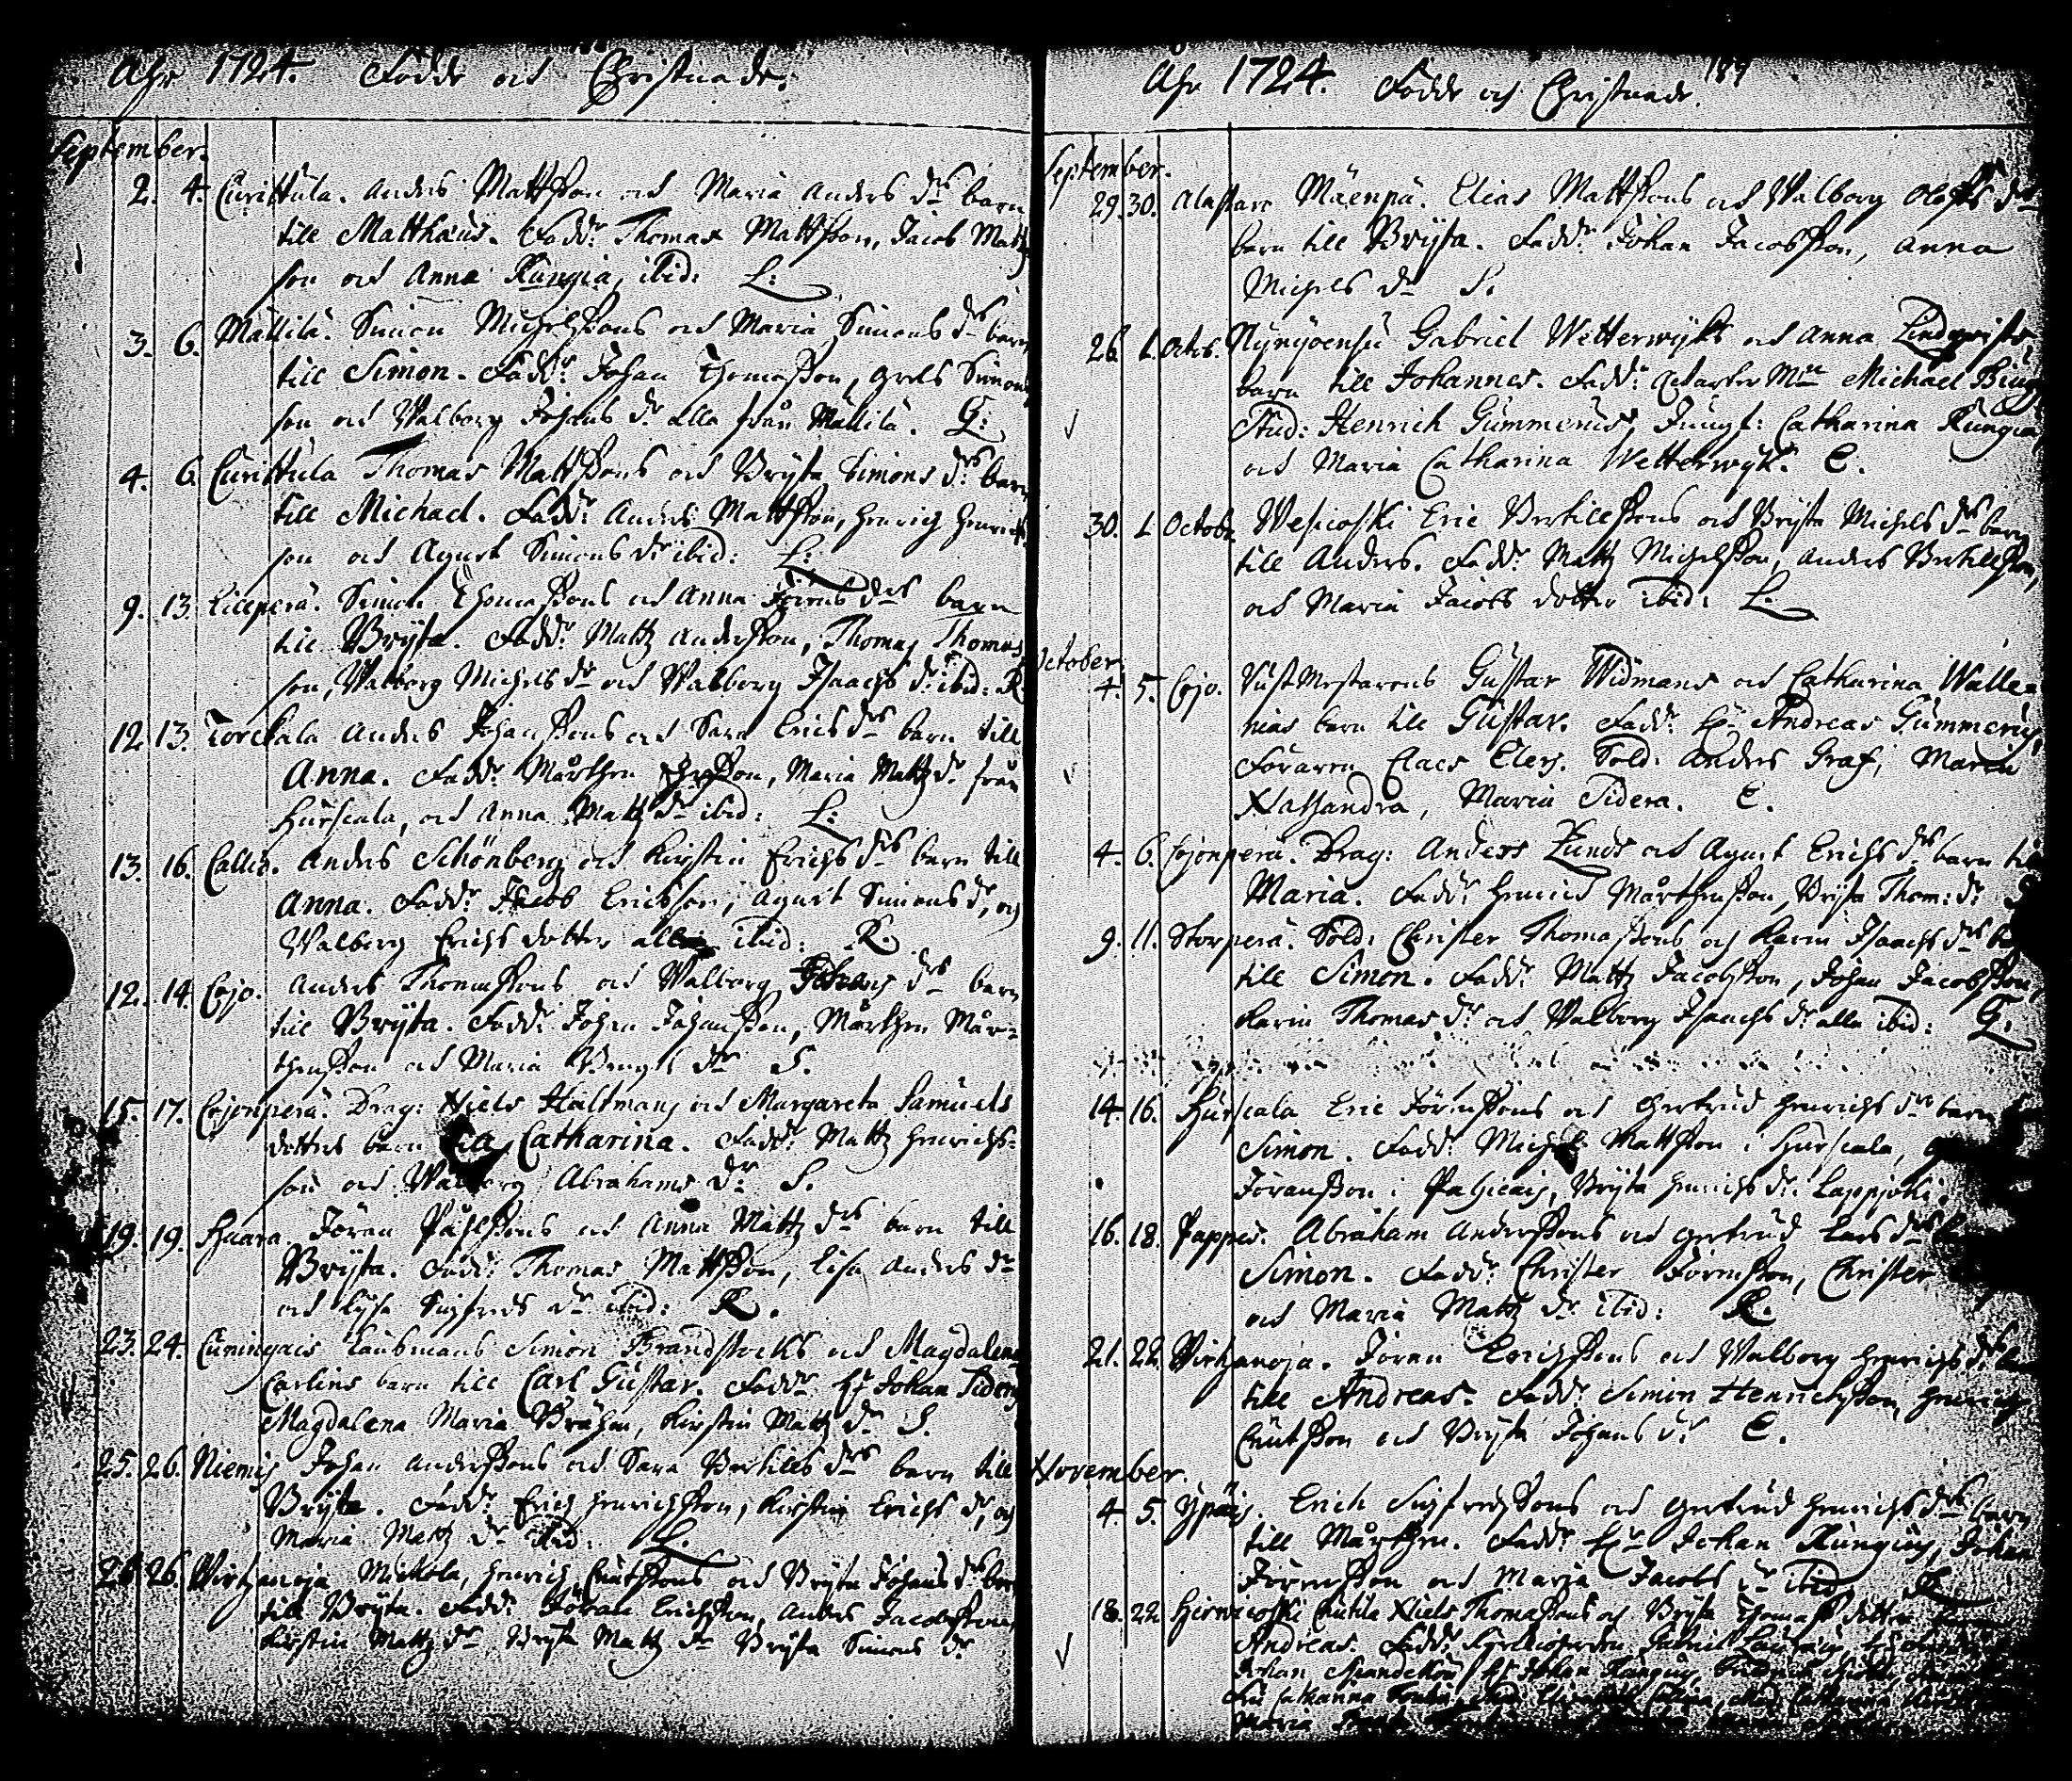 Åhr 1724. Födde och Christnade.
September.
2. 4. Curittula. Anders Mattsson och Maria Anders dr barn
till Matthæus. Fadd: Thomas Mattsson, Jacob Matts
son och Anna Rungia, ibid: L:
3. 6. Mällilä. Simon Michelssons och Maria Simons dr barn
till Simon. Fadd: Johan Thomasson, Grels Simons
son och Walborg Johans dr alla från Mällilä. G:
4. 6. Curittula Thomas Mattssons och Bryta Simons dr barn
till Michael. Fadd: Anders Mattsson, Henrich Henrichs
son och Agnet Simons dr ibid: L:
9. 13. Lillperä. Simon Thomassons och Anna Jörens drs barn
till Bryta. Fadd: Mattz Andersson, Thomas Thomas
son, Walborg Michels dr och Walborg Isaachs dr ibid: R.
12. 13. Torckala Anders Johanssons och Sara Erics dr barn till
Anna. Fadd: Mårthen, Maria Mattz dr från
Hurscala, och Anna Mattz dr ibid: L:
13. 16. Callis. Anders Schönberg och Kirstin Erichs drs barn till
Anna. Fadd: Jacob Ericsson, Agnet Simons dr, och
Walborg Erichs dotter alla ibid: R.
12. 14. Cojo. Anders Thomassons och Walborg Johans drs barn
till Bryta. Fadd: Johan Johansson, Mårthen Mår-
thensson och Maria Bengts dr S.
15. 17. Cojonperä. Drag: Niels Hultmans och Margareta Samuels
dotters barn till Catharina. Fadd: Mattz Henrichs-
son och Walborg Abrahams dr S.
19. 19. Haara. Jören Påhlssons och Anna Mattz drs barn till
Bryta. Fadd: Thomas Mattsson, Lisa Anders dr
och Lysa Sigfreds dr ibid: R.
23. 24. Cuningais Länsmans Simon Brandstacks och Magdalena
Carlins barn till Carl Gustav. Fadd: Hr Johan Sideny
Magdalena Maria, Kirstin Mattz dr S.
25. 26. Niemis Johan Anderssons och Sara Bertills drs barn till
Bryta. Fadd: Erich Henrichsson, Kirstin Erichs dr, och
Maria Mattz dr ibid. L.
26. Wirtzanoja Mickola, Henrich Cnutssons och Bryta Johans dr barn
till Bryta. Fadd: Jöran Erichsson, Anders Jacobsson,
Kirstin Mattz dr Bryta Mattz dr Bryta Simons dr
Åhr 1724. Födde och Christnade.
September.
29. 30. Alastaro Mäenpä. Elias Mattssons och Walborg Olofs dr
barn till Bryta. Fadd: Johan Jacobsson, Anna
Michels dr S.
26. 1. Octob. Nynjoensu Gabriel Wetterwyks och Anna Lindqvists
barn till Johannes. Fadd: Michael
Stud: Henrich Gummerus, Jungf: Catharina Rungia
och Maria Catharina Wetterwyk. C.
30. 1 Octobr. Wesicoski Eric Bertillssons och Bryta Michels dr barn
till Anders. Fadd: Mattz Michelsson, Anders Bertillsson,
och Maria Jacobs dotter ibid: L.
October.
4. 5. Cojo. Gustav Widmans och Catharina Walle-
nias barn till Gustav. Fadd: Hr Andreas Gummerus,
Föraren Claes Elers. Sold: Anders Graf, Maria
Kassandra, Maria Sidera. C.
4. 6. Cojonperä. Drag: Anders Lunds och Agnet Erichs dr barn till
Maria. Fadd: Henrich Mårthensson, Bryta Thom: dr
9. 11. Storperä. Sold: Christer Thomassons och Karin Isaachs drs
till Simon. Fadd: Mattz Jacobsson, Johan Jacobsson,
Karin Thomas dr och Walborg Isaachs dr alla ibid: G.
14. 16. Hurscala Eric Jörenssons och Gertrud Henrichs drs barn
Simon. Fadd: Michel Mattsson i Hurscala,
Jöransson i, Bryta Henrichs dr Lappjoki.
16. 18. Pappis. Abraham Anderssons och Gertrud Lars drs
Simon. Fadd: Christer Jörensson, Christer
och Maria Mattz dr ibid: R.
21. 22. Wirtzanoja. Jören Erichssons och Walborg Henrichs drs
till Andreas. Fadd: Simon Henrichsson, Henrich
Cnutsson och Bryta Johans dr C.
November.
4. 5. Ypäis. Erich Sigfredssons och Gertrud Henrichs drs barn
till Mårthen. Fadd: Hr Johan Rungius, Johan
Jörensson och Maria Jacobs dr ibid: R
18. 22. Hirwicoski Cnutila Niels Thomassons och Bryta Thomass dotter
Andreas. Fadd:
Johan Hr Johan Rungius,
Fru Catharina
Maria